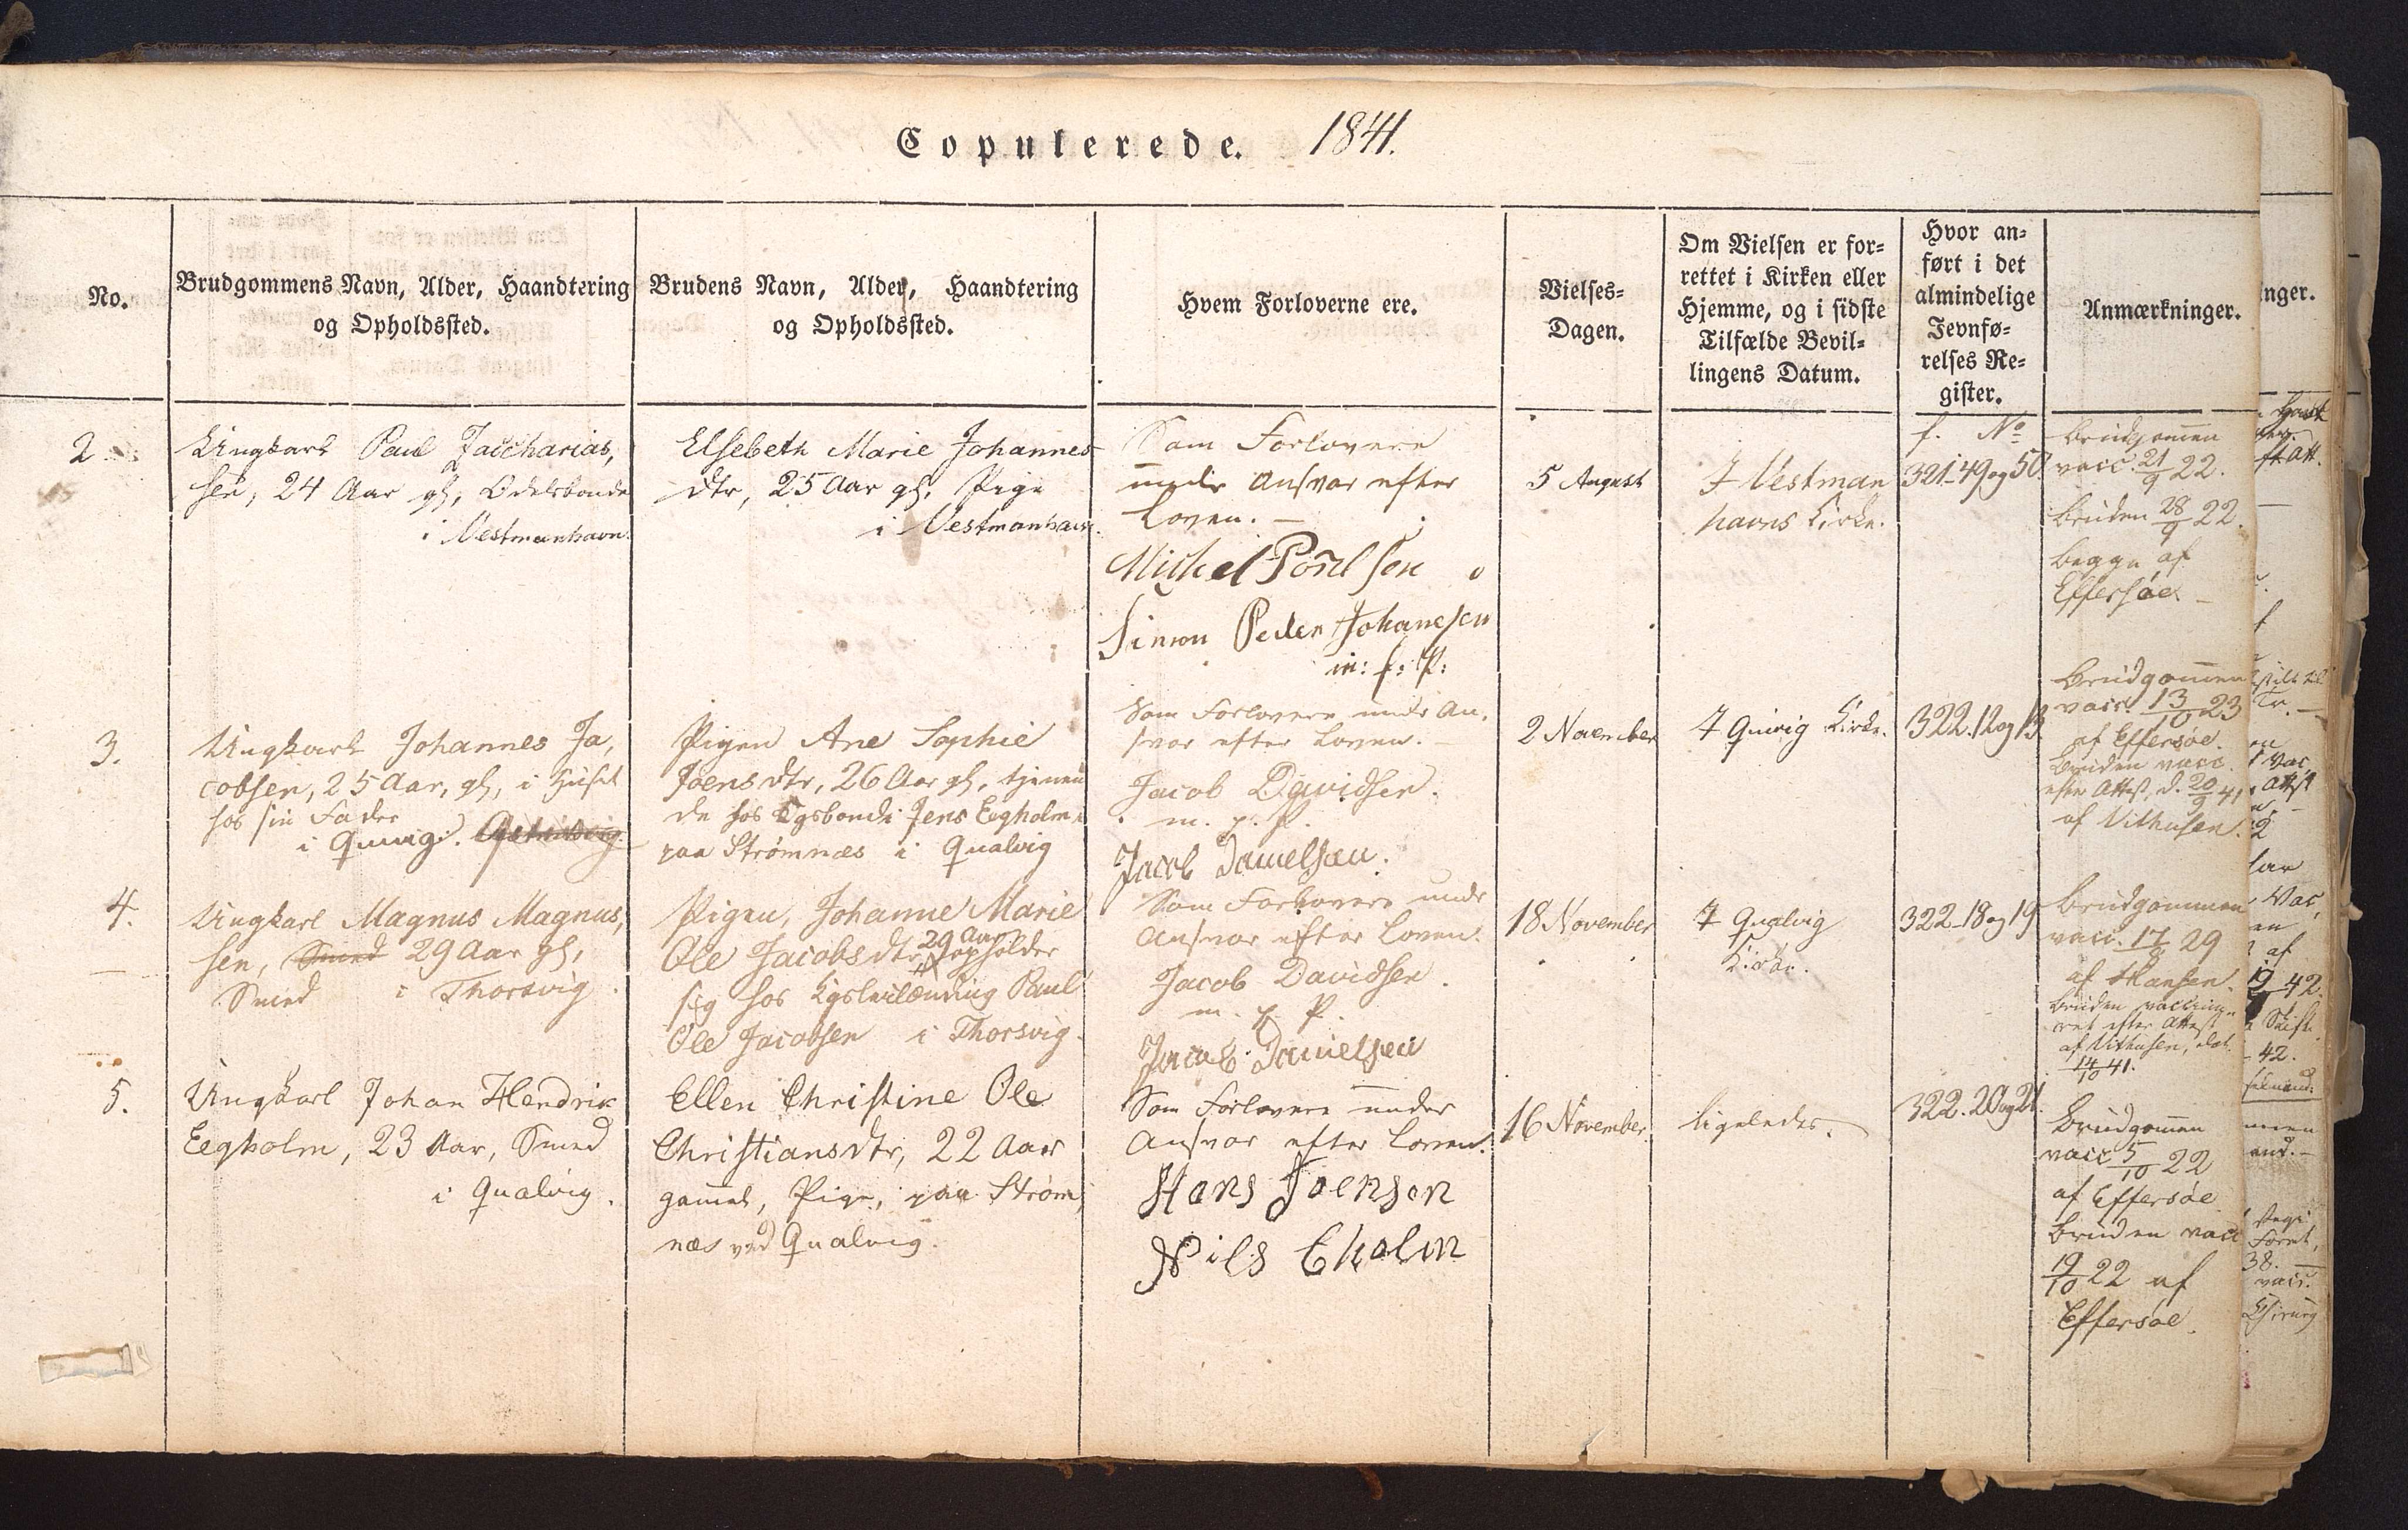 Copulerede. 1841.
No.
Brudgommens Navn, Alder, Haandtering
og Opholdssted.
Brudens Navn, Alder, Haandtering
og Opholdssted.
Hvem Forloverne ere.
Vielses-
Dagen.
Om Vielsen er for-
rettet i Kirken eller
Hjemme, og i sidste
Tilfælde Bevil-
lingens Datum.
Hvor an-
ført i det
almindelige
Jevnfø-
relses Re-
gister.
Anmærkninger.
2
Ungkarl Paul Zaccharias,
sen, 24 Aar gl, Odelsbonde
i Vestmanhavn.
Elsebeth Marie Johannes
dtr, 25 Aar gl, Pige
i Vestmanhavn.
Som Forlovere
under Ansvar efter
Loven. –
Michel Poulsen
Simon Peder Johanesen
m: f: P:
5 August
I Vestman
havns Kirke.
f. No
321-49og50.
Brudgommen
vacc. 21/9 22.
Bruden 28/9 22.
begge af
Effersøe –
3.
Ungkarl Johannes Ja,
cobsen, 25 Aar, gl, i Huset
hos sin Fader
i Quivig.
Pigen Ane Sophie
Joensdtr, 26 Aar gl, tjenen
de hos Kgsbonde Jens Eegholm
paa Strømnæs i Qualvig
Som Forlovere under An,
svar efter Loven. –
Jacob Davidsen.
m. p. P.
Jacob Danielsen.
2 November
I Quivig Kirke.
322.12og13
Brudgommen
vacc. 13/10 23
af Effersøe.
Bruden vacc.
efter Attest, d. 20/9 41
af Vithusen.
4.
Ungkarl Magnus Magnus,
sen, Smed 29 Aar gl,
Smed i Thorsvig.
Pigen, Johanne Marie
29 Aar
Ole Jacobsdtr, opholder
sig hos Paul
Ole Jacobsen i Thorsvig.
Som Forlovere under
Ansvar efter Loven.
Jacob Davidsen.
m. p. P.
Jacob Danielsen
18 November
I Qualvig
Kirke.
322-18og19
Brudgommen
vacc. 29
af Hansen.
Bruden vaccine-
ret efter Attest
af Vithusen, dat.
14/10 41.
5.
Ungkarl Johan Hendrik
Eegholm, 23 Aar, Smed
i Qualvig.
Ellen Christine Ole
Christiansdtr, 22 Aar
gammel, Pige, paa Strøm,
næs ved Qualvig.
Som Forlovere under
Ansvar efter Loven.
Hans Joensen
Nils Eholm
16 November
ligeledes.
322.20og21.
Brudgommen
vacc 5/10 22
af Effersøe
Bruden vacc
19/10 22 af
Effersøe.